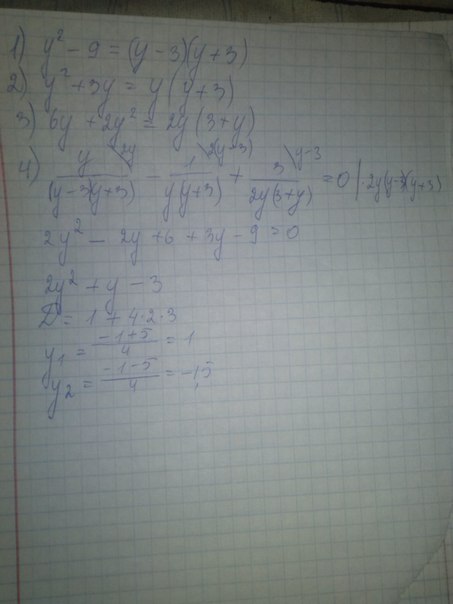 1) y² - 9 = (y - 3)(y + 3)
2) y² + 3y = y (y + 3)
3) 6y + 2y² = 2y (3 + y)
4) y\2y/(y-3)(y+3) - 1\2(y-3)/y(y+3) + 3\y-3/2y(3+y) = 0 | · 2y(y-3)(y+3)
2y² - 2y + 6 + 3y - 9 = 0
2y² + y - 3
D = 1 + 4·2·3
y₁ = -1+5/4 = 1
y₂ = -1-5/4 = -1,5